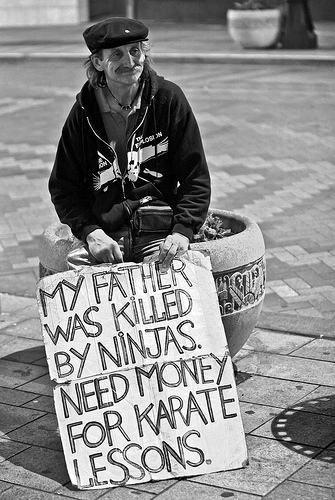 MY FATHER
WAS KILLED
BY NINJAS.
NEED MONEY
FOR KARATE
LESSONS.